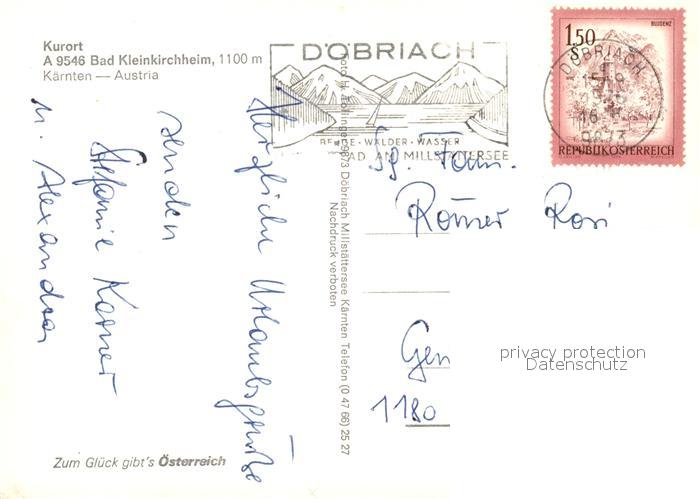 Kurort
A 9546 Bad Kleinkirchheim, 1100 m
Kärnten — Austria
Herzliche Urlaubsgrüße
senden
Stefanie
u. Alexandra
Zum Glück gibt's Österreich
9873 Döbriach Millstättersee Kärnten Telefon (0 47 66) 25 27
Nachdruck verboten
DÖBRIACH
BERGE · WÄLDER · WASSER
BAD AM MILLSTÄTTERSEE
BLUDENZ
1,50
S
REPUBLIK ÖSTERREICH
DÖBRIACH
9873
Fam.
Römer Rosi
1180
privacy protection
Datenschutz